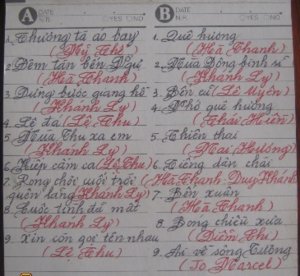 A DATE N.R. YES NO
1. Thương tà áo bay
(Mỹ Thể)
2. Đêm tàn bến Ngự
(Hà Thanh)
3. Dừng bước giang hồ
(Khánh Ly)
4. Lệ đá (Lệ Thu)
5. Mùa Thu xa em
(Khánh Ly)
6. Kiếp cầm ca (Lệ Thu)
7. Rong chơi cuối trời
quên lãng (Khánh Ly)
8. Cuộc tình đã mất
(Khánh Ly)
9. Xin còn gọi tên nhau
(Lệ Thu)
B DATE N.R. YES NO
1. Quê hương
(Hà Thanh)
2. Mùa Đông binh sĩ
(Khánh Ly)
3. Bến cũ (Lệ Uyên)
4. Nhớ quê hương
(Thái Hiền)
5. Thiên thai
(Mai Hương)
6. Tiếng dân chài
(Hà Thanh, Duy Khánh)
7. Bến xuân
(Hà Thanh)
8. Bóng chiều xưa
(Diễm Chi)
9. Ai về sông Tương
(Jo Marcel)